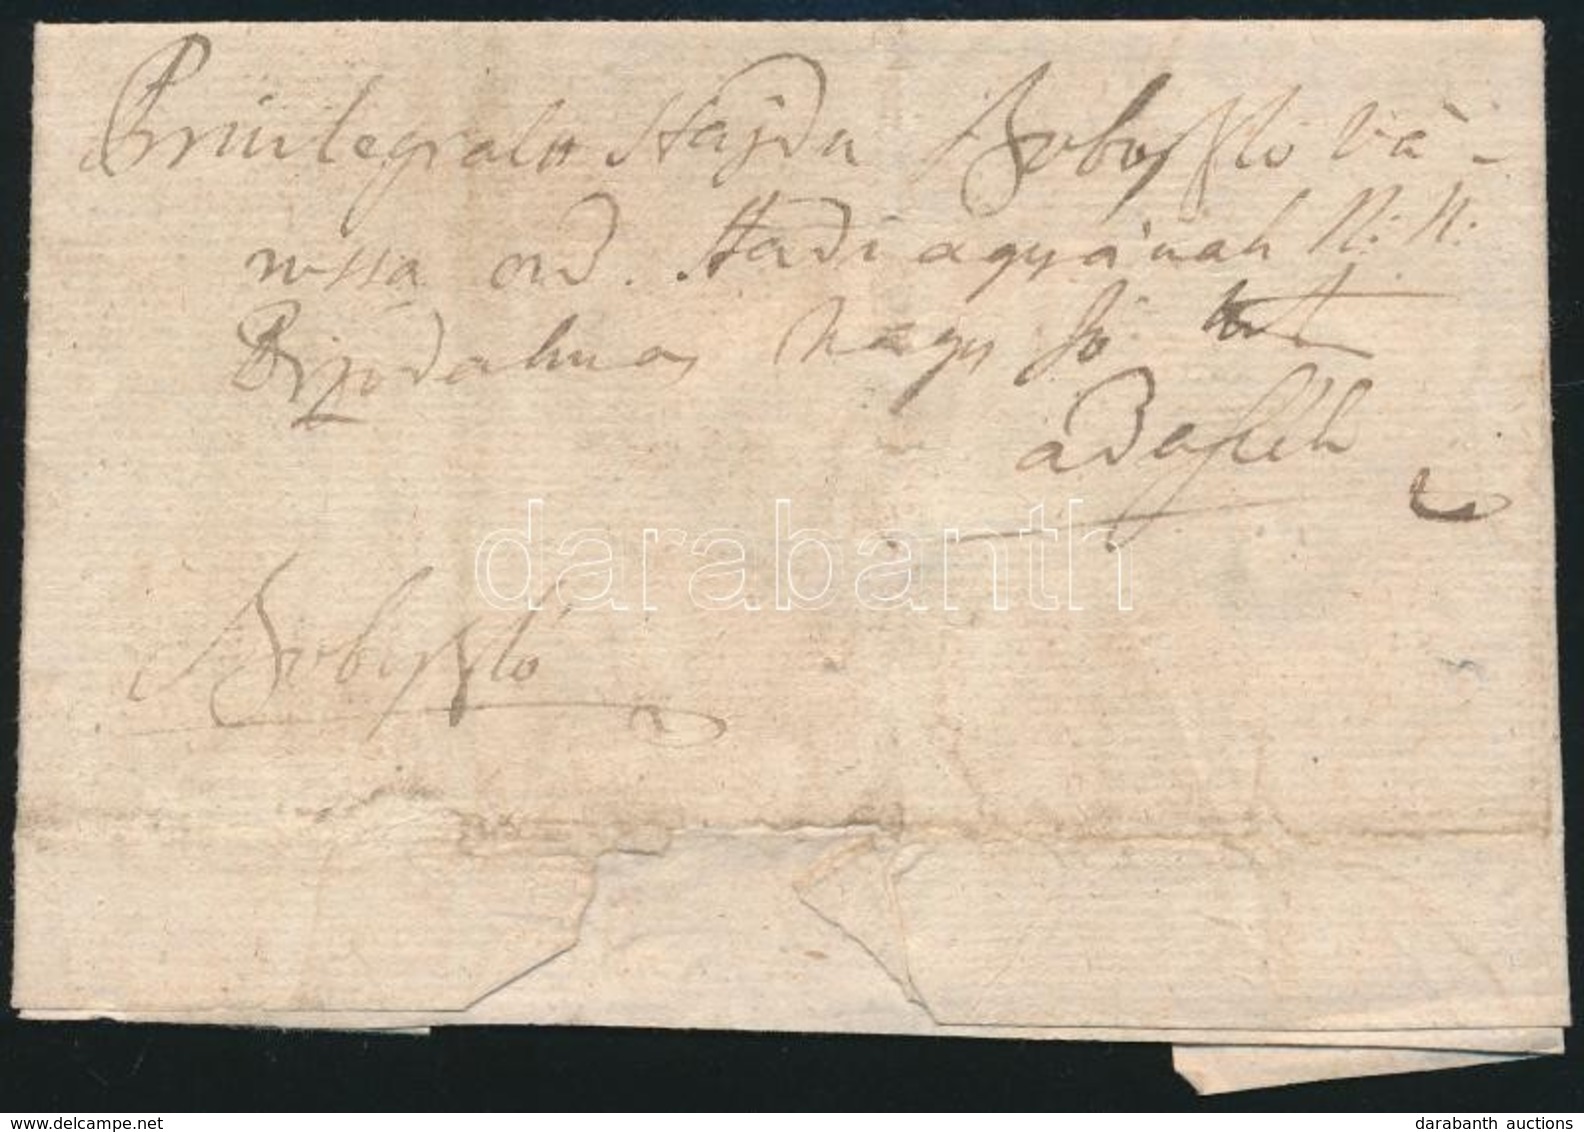 Privilegialtt Hajdu Szoboszló Vá-
rossa ord. Hadnagyának N: N:
Bizodalmas Nagy Jó
adassék
Szoboszló
darabanth
darabanth auctions